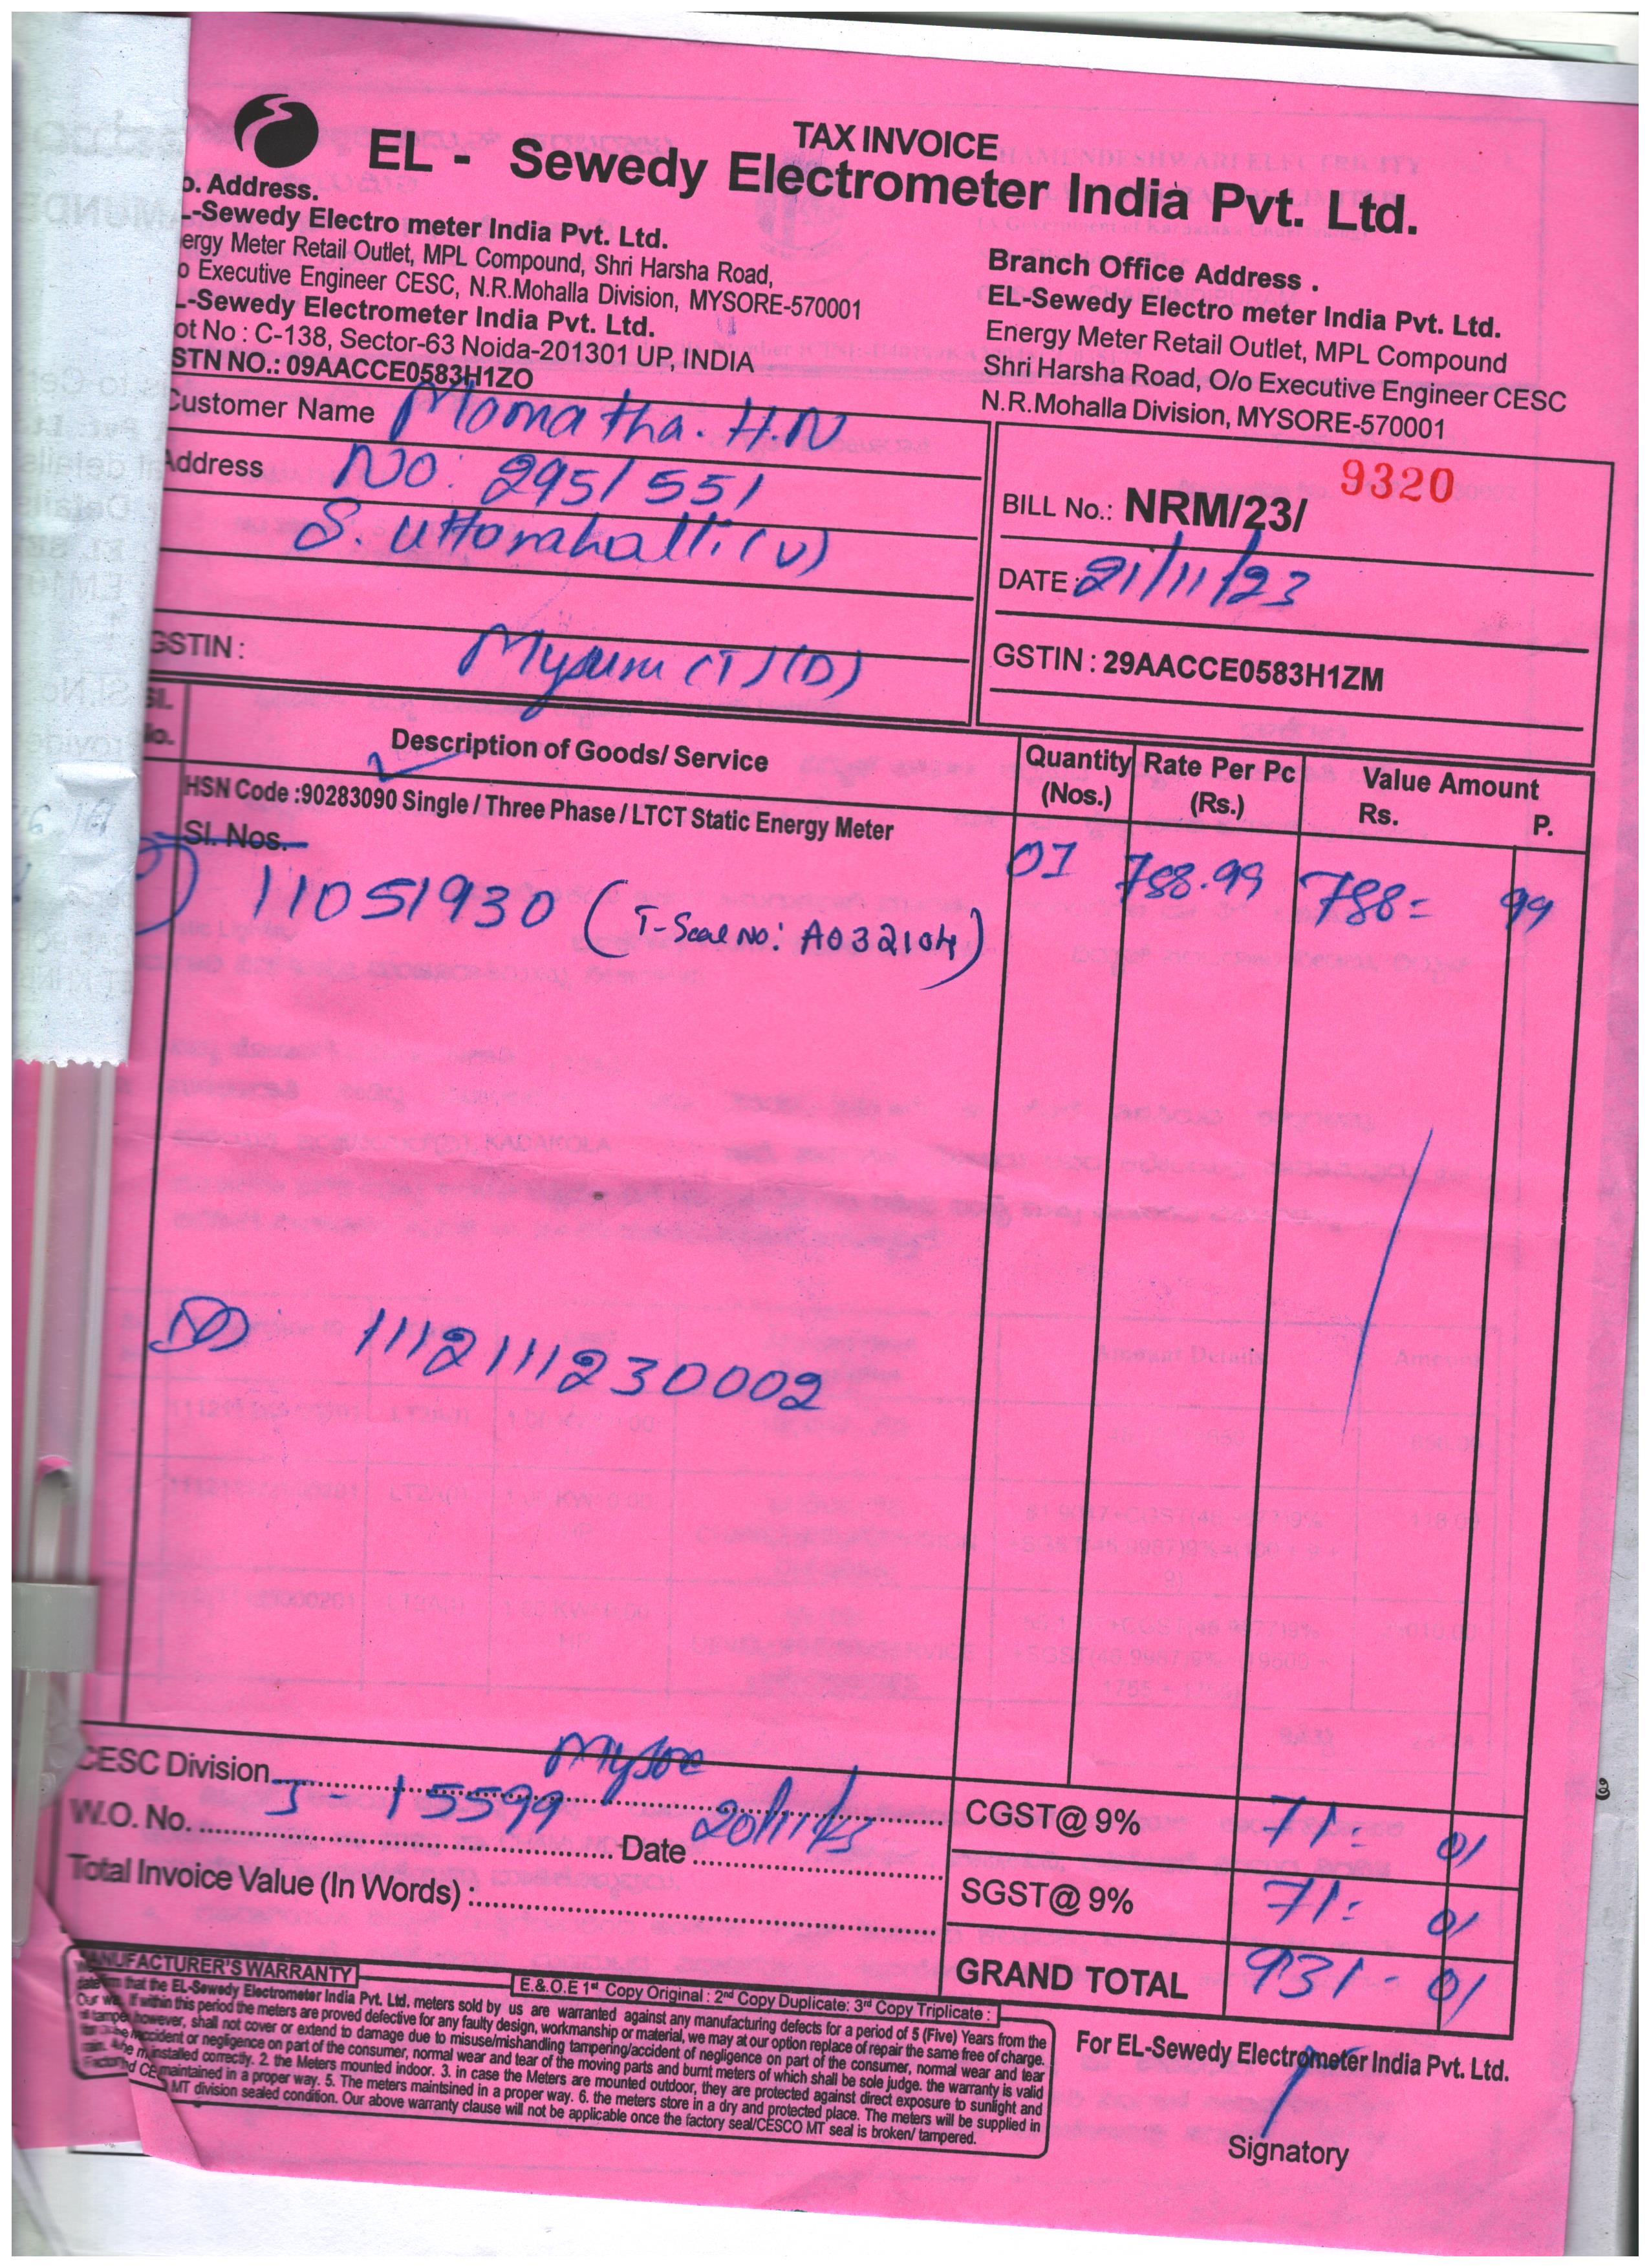 TAX INVOICE
EL - Sewedy Electrometer India Pvt. Ltd.
o. Address.
L-Sewedy Electro meter India Pvt. Ltd.
ergy Meter Retail Outlet, MPL Compound, Shri Harsha Road,
o Executive Engineer CESC, N.R.Mohalla Division, MYSORE-570001
L-Sewedy Electrometer India Pvt. Ltd.
ot No : C-138, Sector-63 Noida-201301 UP, INDIA
STN NO.: 09AACCE0583H1ZO
Branch Office Address .
EL-Sewedy Electro meter India Pvt. Ltd.
Energy Meter Retail Outlet, MPL Compound
Shri Harsha Road, O/o Executive Engineer CESC
N.R.Mohalla Division, MYSORE-570001
Customer Name Mamatha. H.N
Address No: 295/551
S. Uttanahalli (V)
GSTIN : Mysuru (T) (D)
BILL No.: NRM/23/ 9320
DATE : 21/11/23
GSTIN : 29AACCE0583H1ZM
Sl. No. Description of Goods/ Service Quantity (Nos.) Rate Per Pc (Rs.) Value Amount Rs. P.
HSN Code :90283090 Single / Three Phase / LTCT Static Energy Meter
Sl. Nos.
11051930 (T-Seal No: A032104) 01 788.99 788= 99
111211230002
CESC Division Mysore
W.O. No. J-15599 Date 20/11/23
Total Invoice Value (In Words) :
CGST@ 9% 71= 01
SGST@ 9% 71= 01
GRAND TOTAL 931- 01
MANUFACTURER'S WARRANTY
E.&.O.E 1st Copy Original : 2nd Copy Duplicate: 3rd Copy Triplicate :
that the EL-Sewedy Electrometer India Pvt. Ltd. meters sold by us are warranted against any manufacturing defects for a period of 5 (Five) Years from the
If within this period the meters are proved defective for any faulty design, workmanship or material, we may at our option replace of repair the same free of charge.
however, shall not cover or extend to damage due to misuse/mishandling tampering/accident of negligence on part of the consumer, normal wear and tear
accident or negligence on part of the consumer, normal wear and tear of the moving parts and burnt meters of which shall be sole judge. the warranty is valid
installed correctly. 2. the Meters mounted indoor. 3. in case the Meters are mounted outdoor, they are protected against direct exposure to sunlight and
maintained in a proper way. 5. The meters maintsined in a proper way. 6. the meters store in a dry and protected place. The meters will be supplied in
MT division sealed condition. Our above warranty clause will not be applicable once the factory seal/CESCO MT seal is broken/ tampered.
For EL-Sewedy Electrometer India Pvt. Ltd.
Signatory